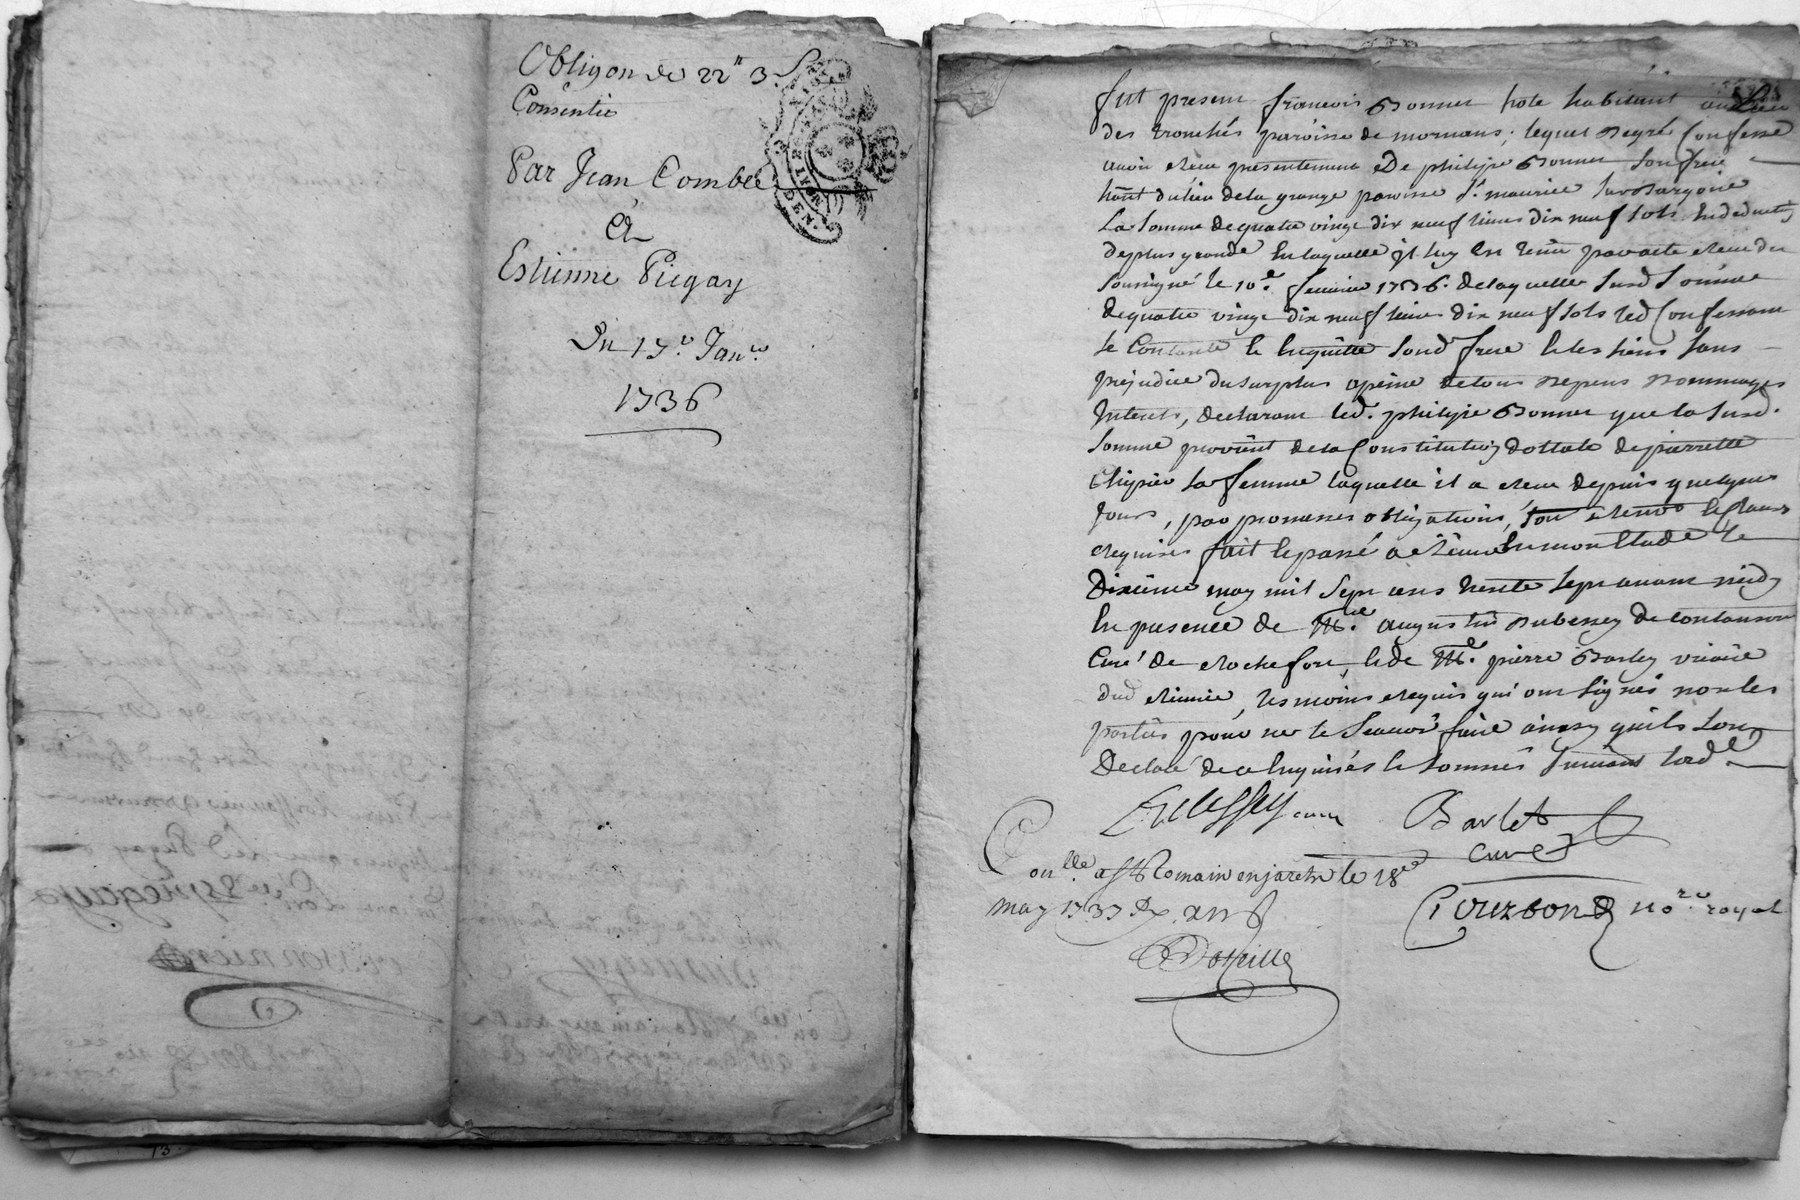 Obligon de 22" 3 s
Consentie
Par Jean Combe
A
Estienne Piegay
Du 17e Janer
1736
fut present francois Bonnet hote habitant au lieu
des tronchés paroisse de mornans; lequel degré Confesse
avoir receu presentement De philipe Bonnet son frere
hant du lieu de la grange paroisse st maurice
La somme de quatre vingt dix neuf livres dix neuf sols
de plus grande en laquelle il luy est tenu par acte receu du
soussigné le 10e fevrier 1736. de laquelle susd somme
de quatre vingt dix neuf livres dix neuf sols led Confessant
se contante et en quitte sond frere et les siens sans
prejudice du surplus a peine de tous depens dommages
Interets, declarant led. philipe Bonnet que la susd.
somme provient de la Constitution dottale de pierrette
sa femme laquelle il a receu depuis quelques
Jours, par promesses obligations,
requises fait et passé a
Dixieme may mil sept cens trente sept avant midy
En presence de Mre augustin Dubessey de contanson
Curé de Rochefort, et de Mre. pierre Barley vicaire
dud, tesmoins requis qui ont signé non les
parties pour ne le scavoir faire ainsy qu'ils ont
Declaré de ce enquises et sommés suivant lord.ce
curé Barlet
curé
Conlle a st Romain en jaretz le 18e
may 1737 Rx.
no.re royal